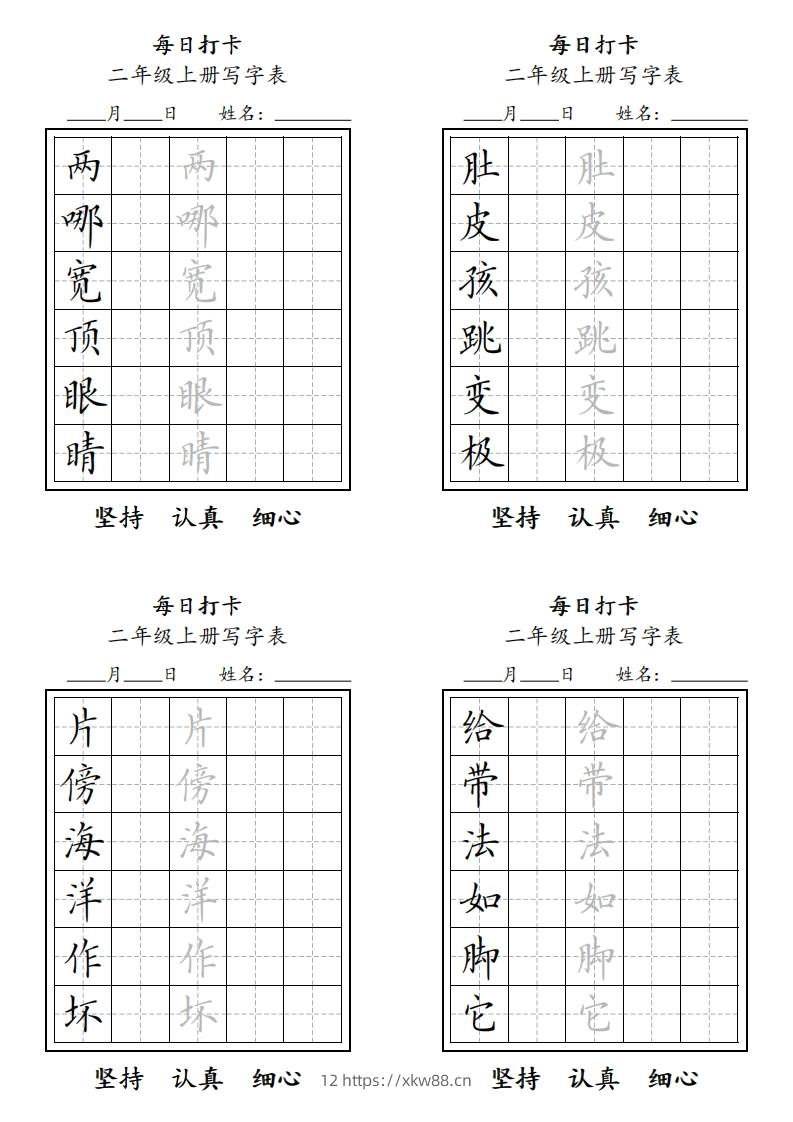 每日打卡
二年级上册写字表
____月____日 姓名：________
两 两
哪 哪
宽 宽
顶 顶
眼 眼
睛 睛
坚持 认真 细心
每日打卡
二年级上册写字表
____月____日 姓名：________
肚 肚
皮 皮
孩 孩
跳 跳
变 变
极 极
坚持 认真 细心
每日打卡
二年级上册写字表
____月____日 姓名：________
片 片
傍 傍
海 海
洋 洋
作 作
坏 坏
坚持 认真 细心
每日打卡
二年级上册写字表
____月____日 姓名：________
给 给
带 带
法 法
如 如
脚 脚
它 它
坚持 认真 细心
12 https://xkw88.cn